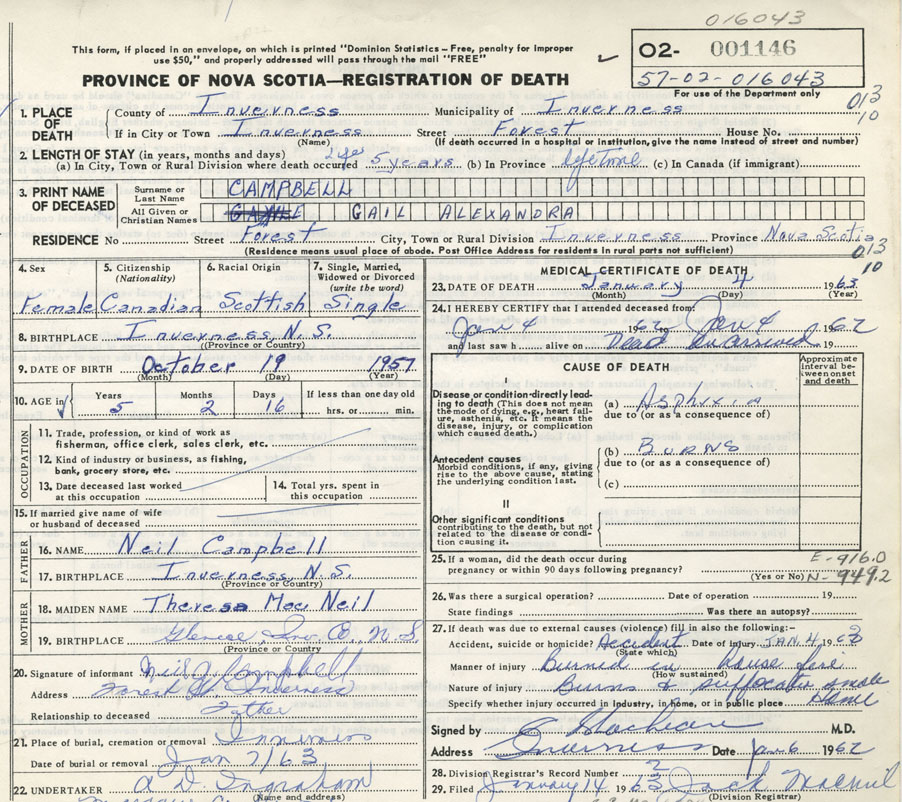 016043
This form, if placed in an envelope, on which is printed "Dominion Statistics – Free, penalty for improper
use $50," and properly addressed will pass through the mail "FREE"
O2- 001146
57-02-016043
For use of the Department only
PROVINCE OF NOVA SCOTIA—REGISTRATION OF DEATH
013
10
1. PLACE OF DEATH
County of Inverness Municipality of Inverness
If in City or Town Inverness Street Forest House No.
(Name) (If death occurred in a hospital or institution, give the name instead of street and number)
2. LENGTH OF STAY (in years, months and days)
(a) In City, Town or Rural Division where death occurred 5 years (b) In Province lifetime (c) In Canada (if immigrant)
3. PRINT NAME OF DECEASED
Surname or Last Name CAMPBELL
All Given or Christian Names GAIL ALEXANDRA
RESIDENCE No Street Forest City, Town or Rural Division Inverness Province Nova Scotia
(Residence means usual place of abode. Post Office Address for residents in rural parts not sufficient)
013
10
4. Sex 5. Citizenship (Nationality) 6. Racial Origin 7. Single, Married, Widowed or Divorced (write the word)
Female Canadian Scottish Single
8. BIRTHPLACE Inverness, N.S.
(Province or Country)
9. DATE OF BIRTH October 19 1957
(Month) (Day) (Year)
10. AGE in Years 5 Months 2 Days 16 If less than one day old
hrs. or min.
OCCUPATION
11. Trade, profession, or kind of work as
fisherman, office clerk, sales clerk, etc.
12. Kind of industry or business, as fishing,
bank, grocery store, etc.
13. Date deceased last worked
at this occupation
14. Total yrs. spent in
this occupation
15. If married give name of wife
or husband of deceased
FATHER
16. NAME Neil Campbell
17. BIRTHPLACE Inverness, N.S.
(Province or Country)
MOTHER
18. MAIDEN NAME Theresa Mac Neil
19. BIRTHPLACE Glencoe, Inv. Co, N.S
(Province or Country
20. Signature of informant Neil J Campbell
Address Forest St Inverness
Relationship to deceased Father
21. Place of burial, cremation or removal Inverness
Date of burial or removal Jan 7/63
22. UNDERTAKER A. D. Ingraham
(Name and address)
MEDICAL CERTIFICATE OF DEATH
23. DATE OF DEATH January 4 1963
(Month) (Day) (Year)
24. I HEREBY CERTIFY that I attended deceased from:
Jan 4 1962 to Jan 4 1962
and last saw h alive on Dead on arrival 19
CAUSE OF DEATH
Approximate
interval between onset
and death
I
Disease or condition directly leading
to death (This does not mean
the mode of dying, e.g., heart failure,
asthenia, etc. It means the
disease, injury, or complication
which caused death.)
(a) Asphixia
due to (or as a consequence of)
Antecedent causes
Morbid conditions, if any, giving
rise to the above cause, stating
the underlying condition last.
(b) BURNS
due to (or as a consequence of)
(c)
II
Other significant conditions
contributing to the death, but not
related to the disease or condition
causing it.
25. If a woman, did the death occur during
pregnancy or within 90 days following pregnancy?
(Yes or No)
E-916.0
N-949.2
26. Was there a surgical operation? Date of operation 19
State findings Was there an autopsy?
27. If death was due to external causes (violence) fill in also the following:-
Accident, suicide or homicide? Accident Date of injury JAN 4 1963
(State which)
Manner of injury Burned in house fire
(How sustained)
Nature of injury Burns & suffocation smoke
Specify whether injury occurred in industry, in home, or in public place Home
Signed by M.D.
Address Inverness Date Jan 6 1962
28. Division Registrar's Record Number 2
29. Filed January 14 1963 Jack MacNeil
(Division Registrar)